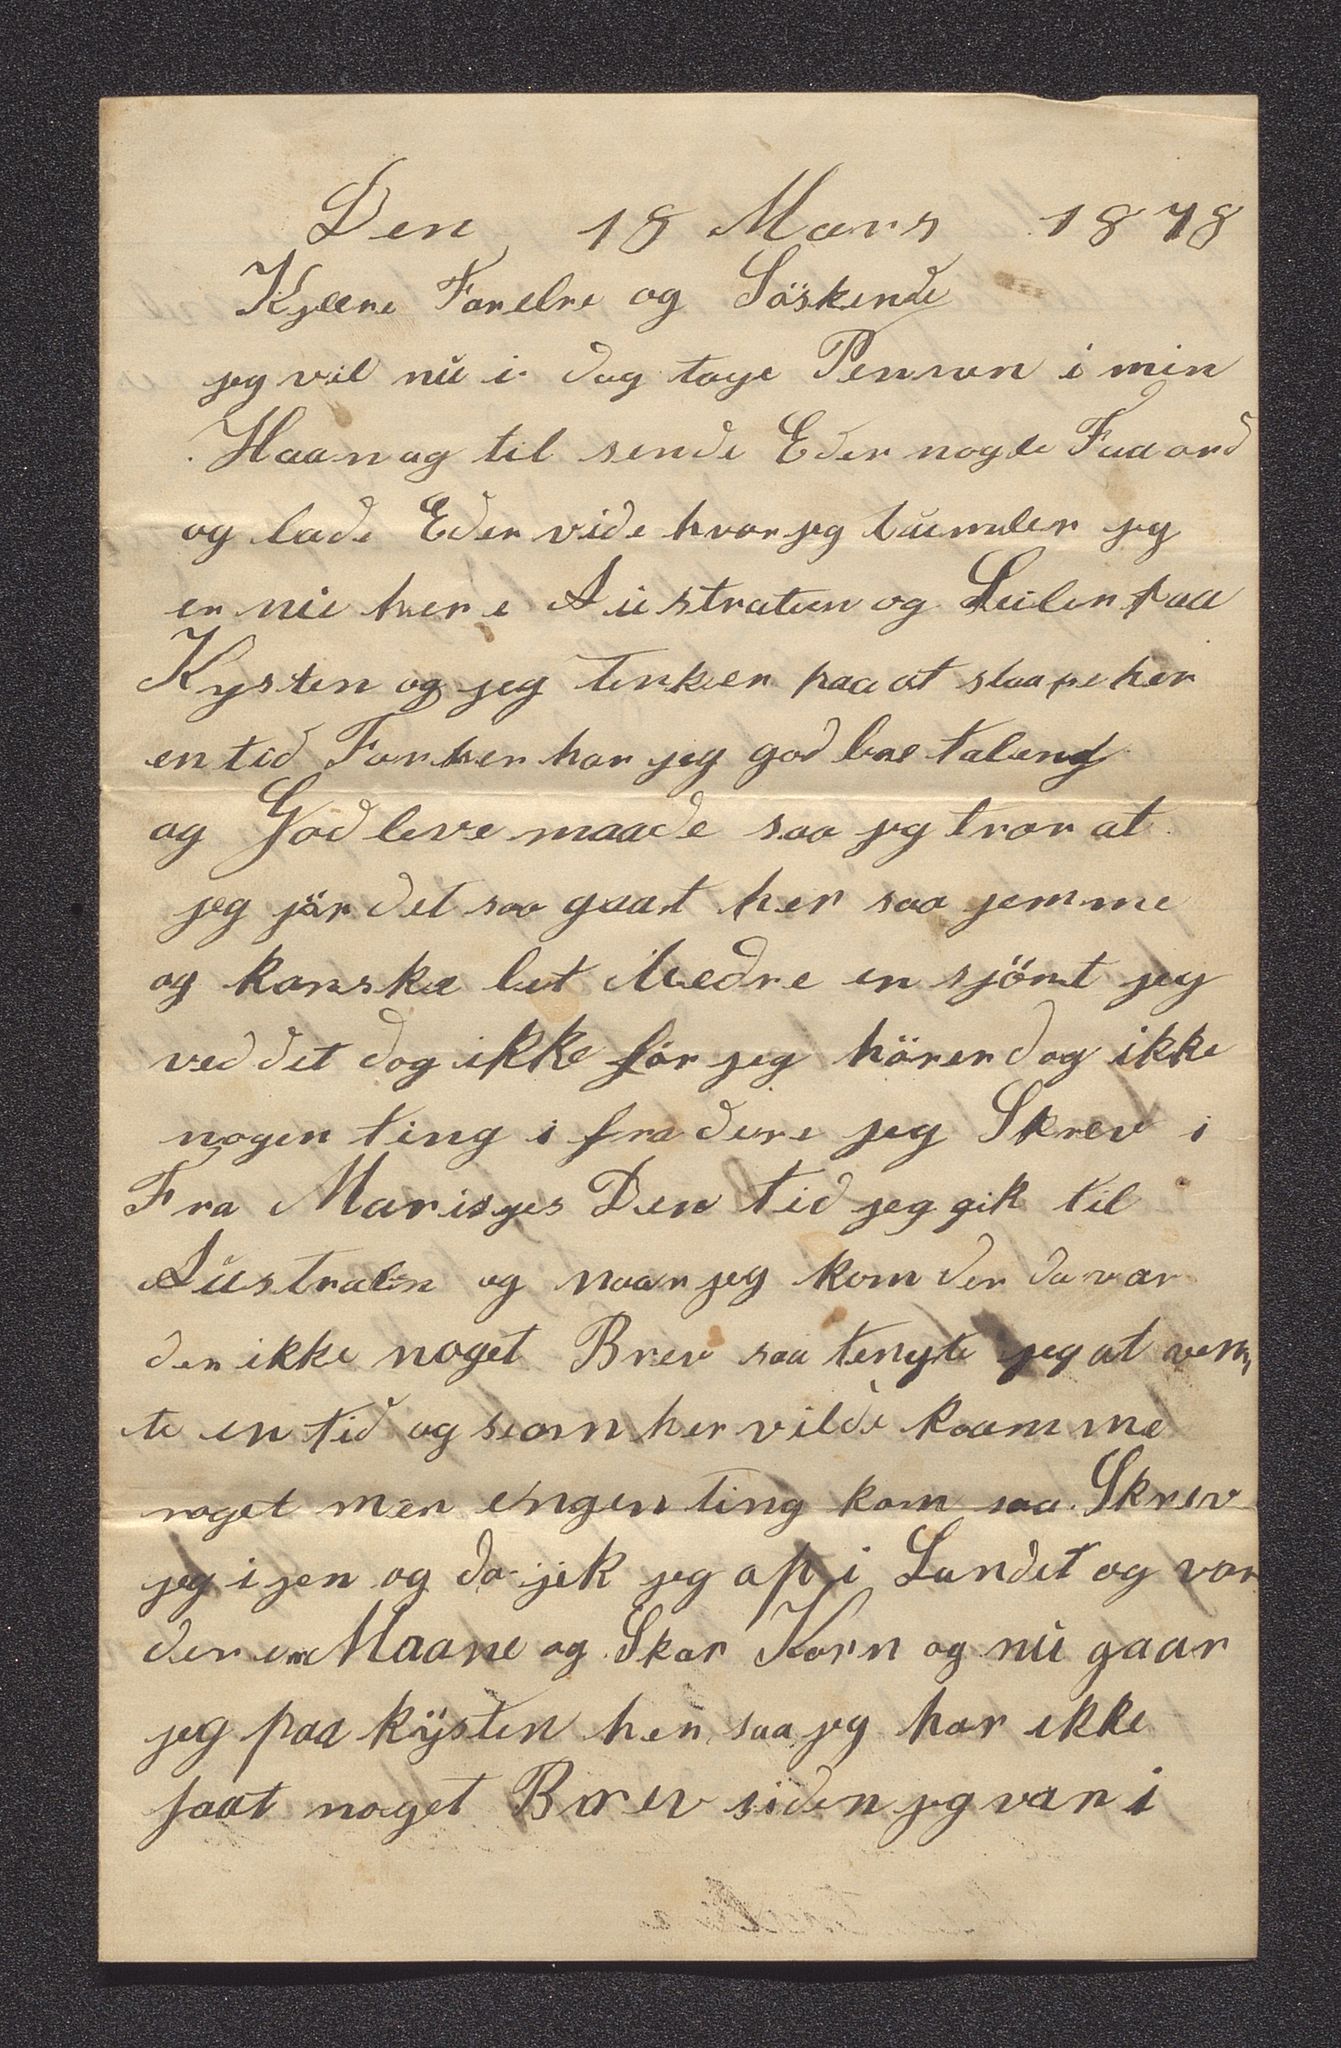 Den 18 Mars 1878
Kjære Forelre og Söskende
jeg vil nu i dag tage Pennan i min
Haan og til sende Eder nogle Faa ord
og lade Eder vide hvor jeg tumler jeg
er nu her i Australien og Seiler paa
Kysten og jeg tenker paa at staa pe her
en tid For her har jeg god betaleng
og God leve maade saa jeg tror at
jeg jör det saa gaat her saa jemme
og kanske lit Bedre en sjömt jeg
ved det dog ikke for jeg hörer dog ikke
nogen ting i fra dere jeg Skrev i
Fra Marisjes Den tid jeg gik til
Australin og naar jeg kom der da var
der ikke noget Brev saa tengte jeg at ven
te en tid og seom her vilde kaamme
noget men engen ting kom saa Skrev
jeg i jen og da jik jeg op i Landet og var
der en Maane og Skar Korn og nu gaar
jeg paa kysten hen saa jeg har ikke
faat noget Brev siden jeg var i